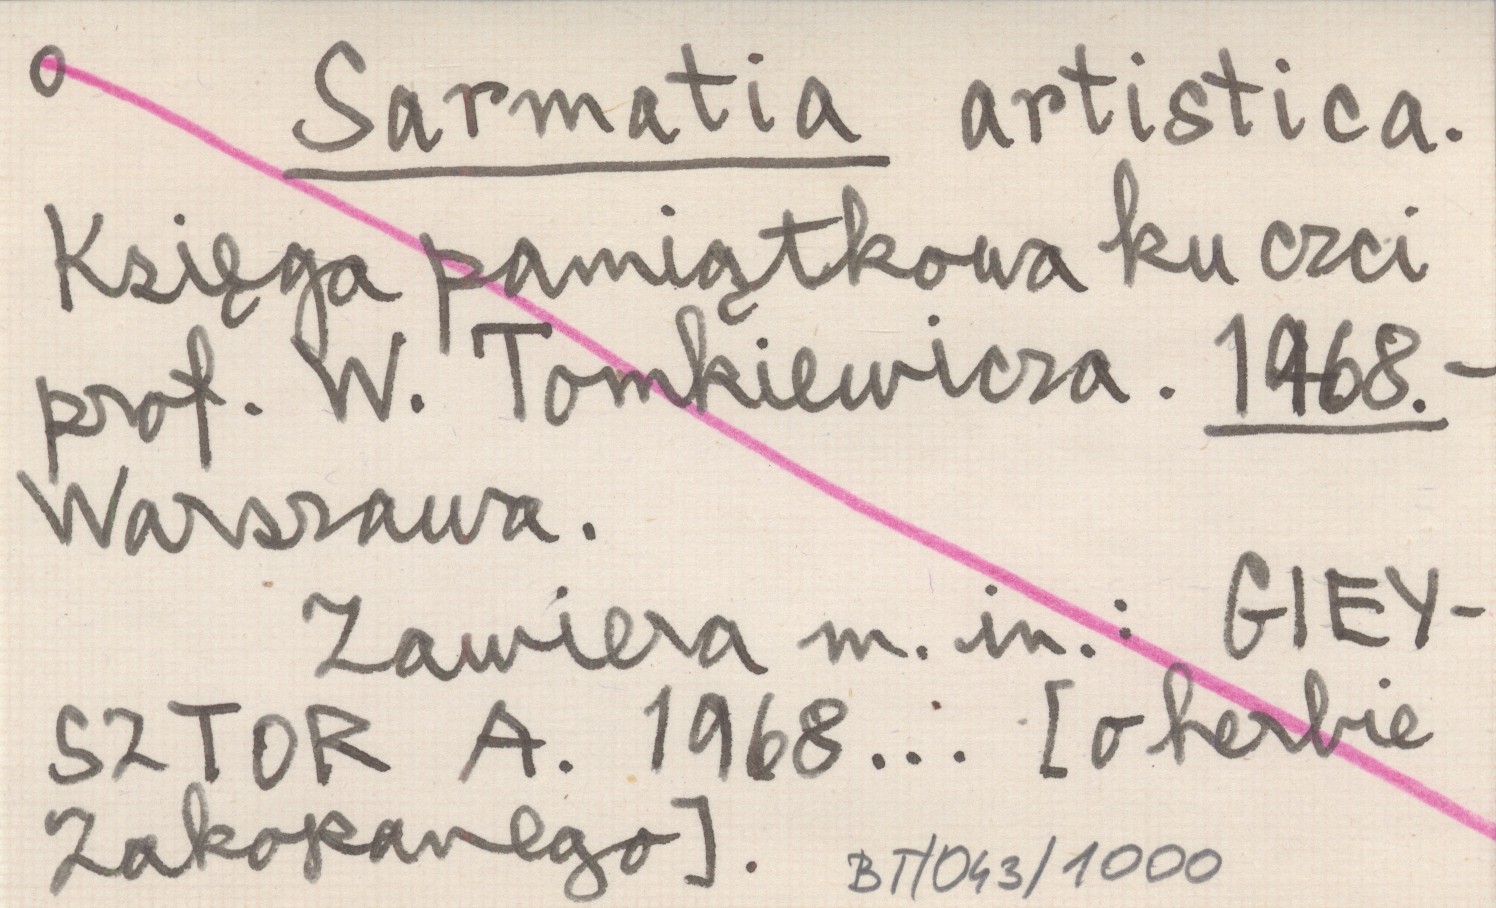 o Sarmatia artistica.
Księga pamiątkowa ku czci
prof. W. Tomkiewicza. 1968. -
Warszawa.
Zawiera m. in.: GIEY-
SZTOR A. 1968... [o herbie
Zakopanego].
BT/043/1000